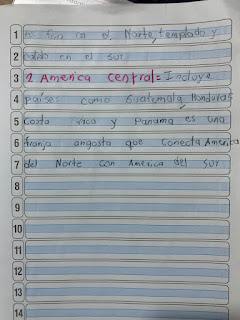 1 es frío en el, Norte, templado y
2 calido en el sur
3 2 America central = Incluye
4 países como Guatemala, Honduras
5 Costa rica y Panama es una
6 franja angosta que conecta America
7 del Norte con America del sur
8
9
10
11
12
13
14